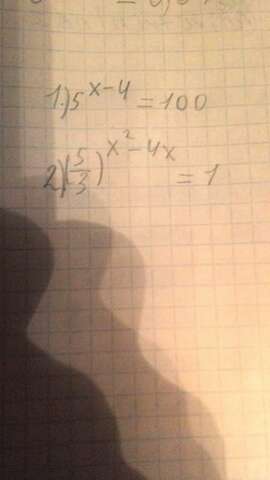 1.) 5^{x-4} = 100
2) (5/3)^{x²-4x} = 1